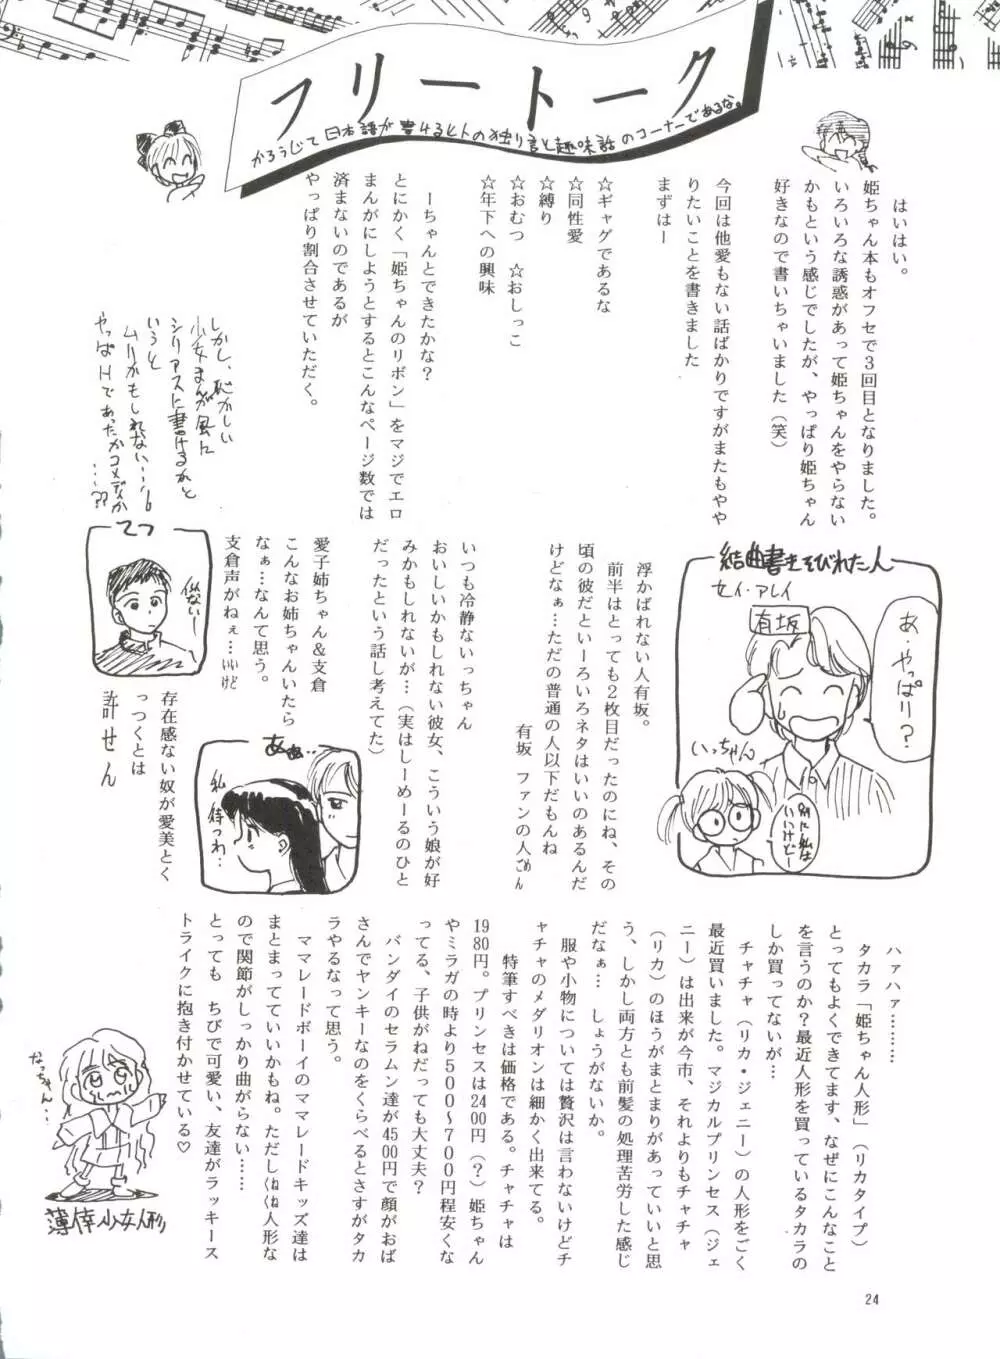 フリートーク
かろうじて日本語が書けるヒトの独り言と趣味話のコーナーであるな。
はいはい。
姫ちゃん本もオフセで3回目となりました。
いろいろな誘惑があって姫ちゃんをやらない
かもという感じでしたが、やっぱり姫ちゃん
好きなので書いちゃいました（笑）
今回は他愛もない話ばかりですがまたもやや
りたいことを書きました
まずはー
☆ギャグであるな
☆同性愛
☆縛り
☆おむつ　☆おしっこ
☆年下への興味
ーちゃんとできたかな？
とにかく「姫ちゃんのリボン」をマジでエロ
まんがにしようとするとこんなページ数では
済まないのであるが
やっぱり割合させていただく。
しかし、恥かしい
少女まんが風に
シリアスに書けるかと
いうと
ムリかもしれない…
やっぱHであったかコメディか
……??
結曲書きそびれた人
セイ・アレイ
有坂
あ・やっぱり？
いっちゃん
別に私は
いいけどー
浮かばれない人有坂。
前半はとっても2枚目だったのにね、その
頃の彼だといーろいろネタはいいのあるんだ
けどなぁ…ただの普通の人以下だもんね
有坂　ファンの人ごめん
いつも冷静ないっちゃん
おいしいかもしれない彼女、こういう娘が好
みかもしれないが…（実はしーめーるのひと
だったという話し考えてた）
愛子姉ちゃん＆支倉
こんなお姉ちゃんいたら
なぁ…なんて思う。
支倉声がねぇ…いいけど
あぁ…
私
待つわ…
てつ
存在感ない奴が愛美とく
っつくとは
許せん
ハァハァ…………
タカラ「姫ちゃん人形」（リカタイプ）
とってもよくできてます、なぜにこんなこと
を言うのか？最近人形を買っているタカラの
しか買ってないが…
チャチャ（リカ・ジェニー）の人形をごく
最近買いました。マジカルプリンセス（ジェ
ニー）は出来が今市、それよりもチャチャ
（リカ）のほうがまとまりがあっていいと思
う、しかし両方とも前髪の処理苦労した感じ
だなぁ…　しょうがないか。
服や小物については贅沢は言わないけどチ
ャチャのメダリオンは細かく出来てる。
特筆すべきは価格である。チャチャは
1980円。プリンセスは2400円（？）姫ちゃん
やミラガの時より500～700円程安くな
ってる、子供がねだっても大丈夫？
バンダイのセラムン達が4500円で顔がおば
さんでヤンキーなのをくらべるとさすがタカ
ラやるなって思う。
ママレードボーイのママレードキッズ達は
まとまってていいかもね。ただしくねくね人形な
ので関節がしっかり曲がらない……
とっても　ちびで可愛い、友達がラッキース
トライクに抱き付かせている♡
なっちゃん…
薄倖少女人形
24